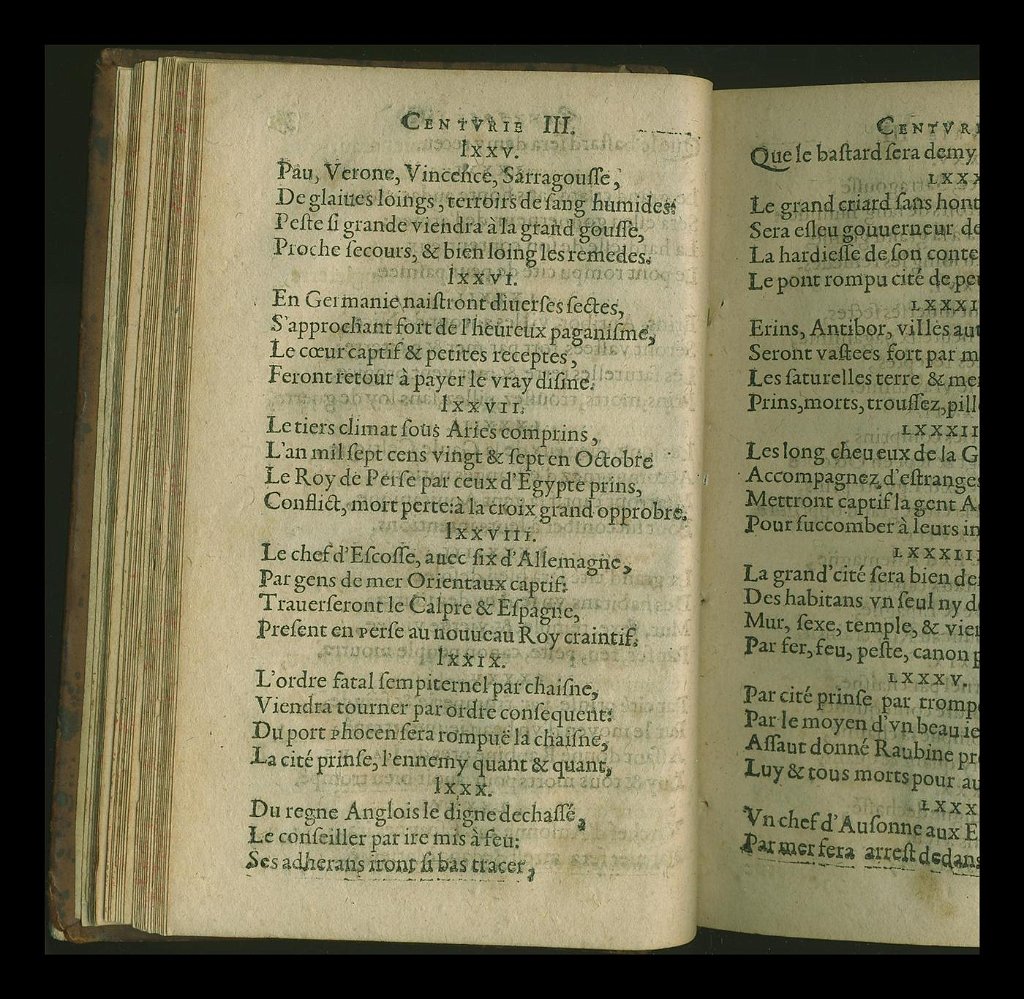 CENTVRIE III.
lXXV.
Pau, Verone, Vincence, Sarragouſſe,
De glaiues loings, terroirs de ſang humides:
Peſte ſi grande viendra à la grand gouſſe,
Proche ſecours, & bien loing les remedes.
lXXVI.
En Germanie naiſtront diuerſes ſectes,
S'approchant fort de l'heureux paganiſme,
Le cœur captif & petites receptes,
Feront retour à payer le vray diſme.
lXXVII.
Le tiers climat ſous Aries comprins,
L'an mil ſept cens vingt & ſept en Octobre
Le Roy de Perſe par ceux d'Egypte prins,
Conflict, mort perte:à la croix grand opprobre.
lXXVIII.
Le chef d'Eſcoſſe, auec ſix d'Allemagne,
Par gens de mer Orientaux captif:
Trauerſeront le Calpre & Eſpagne,
Preſent en perſe au nouueau Roy craintif.
lXXIX.
L'ordre fatal ſempiternel par chaiſne,
Viendra tourner par ordre conſequent:
Du port phocen ſera rompuë la chaiſne,
La cité prinſe, l'ennemy quant & quant,
lXXX.
Du regne Anglois le digne dechaſſé,
Le conſeiller par ire mis à feu:
Ses adherans iront ſi bas tracer,
CENTVRI
Que le baſtard ſera demy
LXXX
Le grand criard ſans hont
Sera eſleu gouuerneur de
La hardieſſe de ſon conte
Le pont rompu cité de peu
LXXXII
Erins, Antibor, villes aut
Seront vaſtees fort par m
Les ſaturelles terre & mer
Prins,morts,trouſſez,pill
LXXXII
Les long cheueux de la G
Accompagnez d'eſtranges
Mettront captif la gent A
Pour ſuccomber à leurs in
LXXXIII
La grand'cité ſera bien de
Des habitans vn ſeul ny d
Mur, ſexe, temple, & vier
Par fer, feu, peſte, canon p
LXXXV.
Par cité prinſe par tromp
Par le moyen d'vn beau ie
Aſſaut donné Raubine pr
Luy & tous morts pour au
LXXX
Vn chef d'Auſonne aux E
Par mer fera arreſt dedans